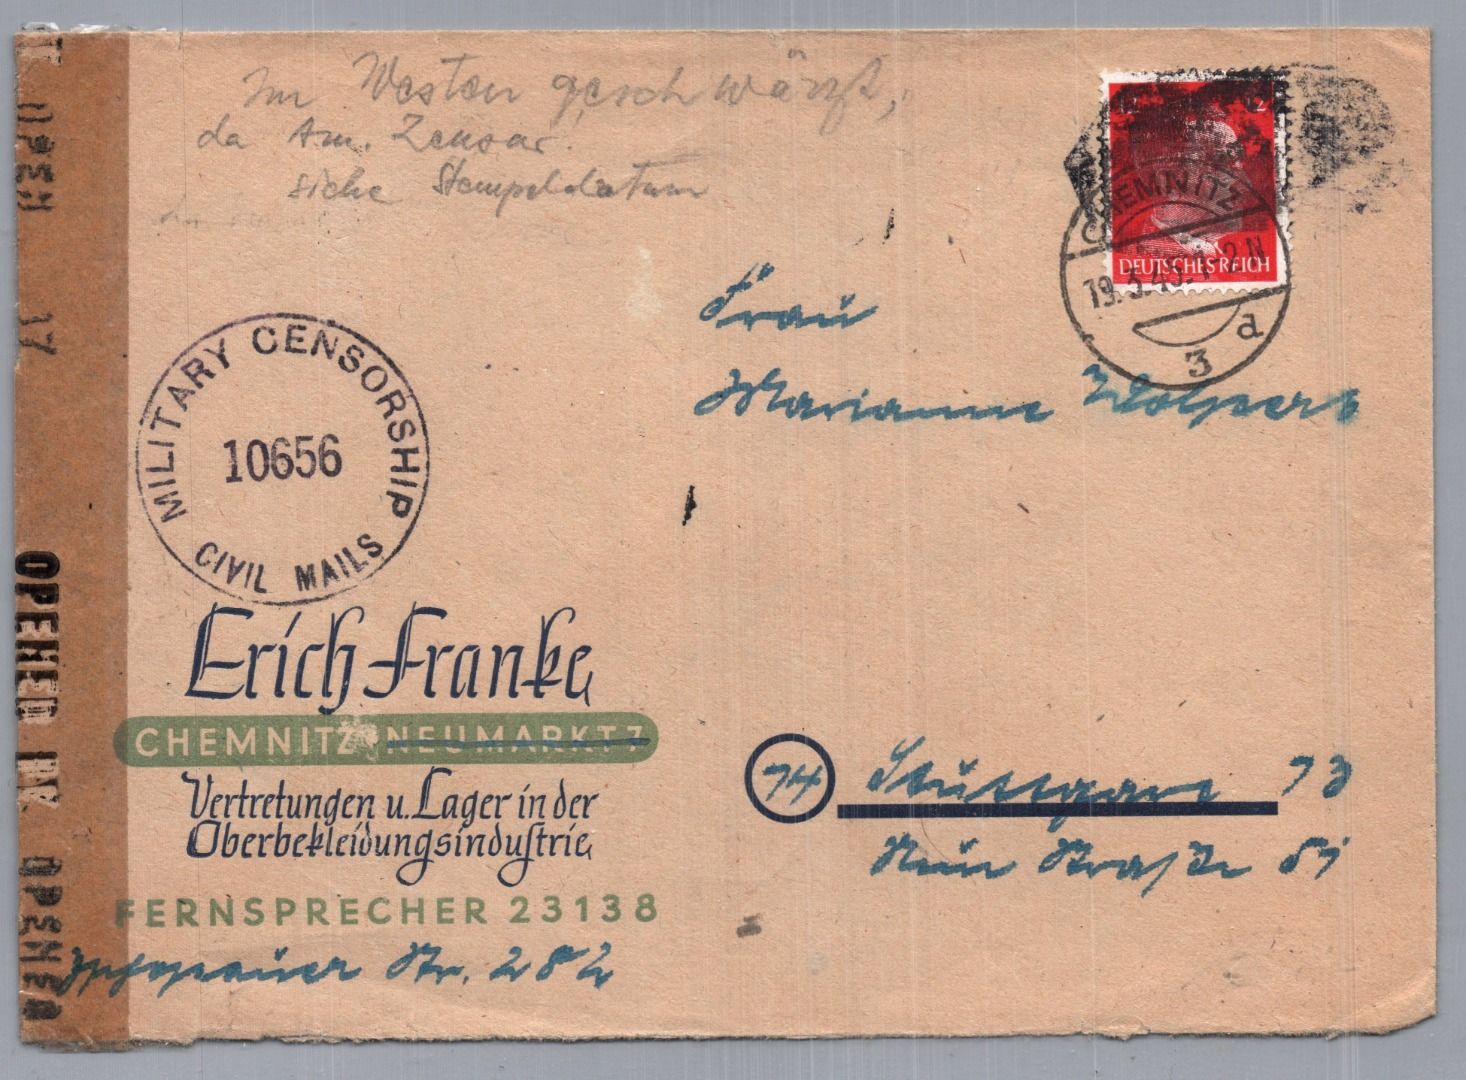 Im Westen geschwärzt,
da Am. Zensur.
siehe Stempeldatum
12 12
DEUTSCHES REICH
CHEMNITZ
19.3.45.
3 d
Frau
Marianne
MILITARY CENSORSHIP
10656
CIVIL MAILS
Erich Franke
CHEMNITZ NEUMARKT 7
Vertretungen u. Lager in der
Oberbekleidungsindustrie
FERNSPRECHER 23138
Zschopauer Str. 282
(14) Stuttgart 13
Straße 51
OPENED
OPENED